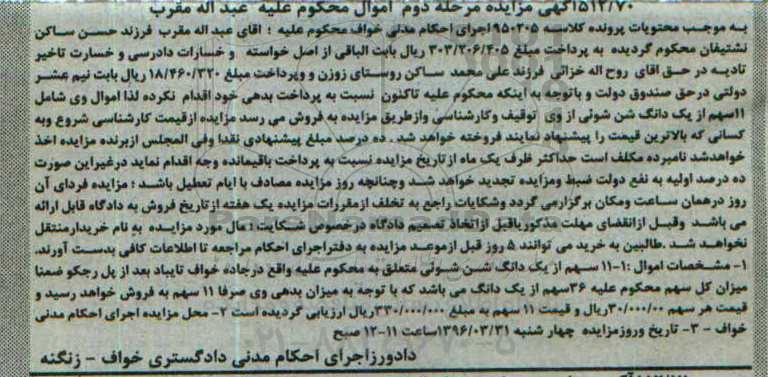 ۵۱۲/۷۰آگهی مزایده مرحله دوم اموال محکوم علیه عبد اله مقرب
به موجب محتویات پرونده کلاسه ۹۵۰۲۰۵ اجرای احکام مدنی خواف محکوم علیه ؛ اقای عبد اله مقرب فرزند حسن ساکن
نشتیفان محکوم گردیده به پرداخت مبلغ ۳۰۳/۲۰۶/۴۰۵ ریال بابت الباقی از اصل خواسته و خسارات دادرسی و خسارت تاخیر
تادیه در حق اقای روح اله خزائی فرزند علی محمد ساکن روستای زوزن و وپرداخت مبلغ ۱۸/۴۶۰/۳۲۰ ریال بابت نیم عشر
دولتی درحق صندوق دولت و باتوجه به اینکه محکوم علیه تاکنون نسبت به پرداخت بدهی خود اقدام نکرده لذا اموال وی شامل
۱۱سهم از یک دانگ شن شوئی از وی توقیف وکارشناسی وازطریق مزایده به فروش می رسد مزایده ازقیمت کارشناسی شروع وبه
کسانی که بالاترین قیمت را پیشنهاد نمایند فروخته خواهد شد . ده درصد مبلغ پیشنهادی نقدا وفی المجلس ازبرنده مزایده اخذ
خواهدشد نامبرده مکلف است حداکثر ظرف یک ماه ازتاریخ مزایده نسبت به پرداخت باقیمانده وجه اقدام نماید درغیراین صورت
ده درصد اولیه به نفع دولت ضبط ومزایده تجدید خواهد شد وچنانچه روز مزایده مصادف با ایام تعطیل باشد ؛ مزایده فردای آن
روز درهمان ساعت ومکان برگزارمی گردد وشکایات راجع به تخلف ازمقررات مزایده یک هفته ازتاریخ فروش به دادگاه قابل ارائه
می باشد وقبل ازانقضای مهلت مذکوریاقبل ازاتخاذ تصمیم دادگاه درخصوص شکایت؛ مال مورد مزایده به نام خریدارمنتقل
نخواهد شد .طالبین به خرید می توانند ۵ روز قبل ازموعد مزایده به دفتراجرای احکام مراجعه تا اطلاعات کافی بدست آورند.
۱- مشخصات اموال :۱-۱۱ سهم از یک دانگ شن شوئی متعلق به محکوم علیه واقع درجاده خواف تایباد بعد از پل رجکو ضمنا
میزان کل سهم محکوم علیه ۳۶سهم از یک دانگ می باشد که با توجه به میزان بدهی وی صرفا ۱۱ سهم به فروش خواهد رسید و
قیمت هر سهم ۳۰/۰۰۰/۰۰ریال و قیمت ۱۱ سهم به مبلغ ۳۳۰/۰۰۰/۰۰۰ریال ارزیابی گردیده است ۲- محل مزایده اجرای احکام مدنی
خواف - ۳- تاریخ وروزمزایده چهار شنبه ۱۳۹۶/۰۳/۳۱ساعت ۱۱-۱۲ صبح
دادورزاجرای احکام مدنی دادگستری خواف - زنگنه